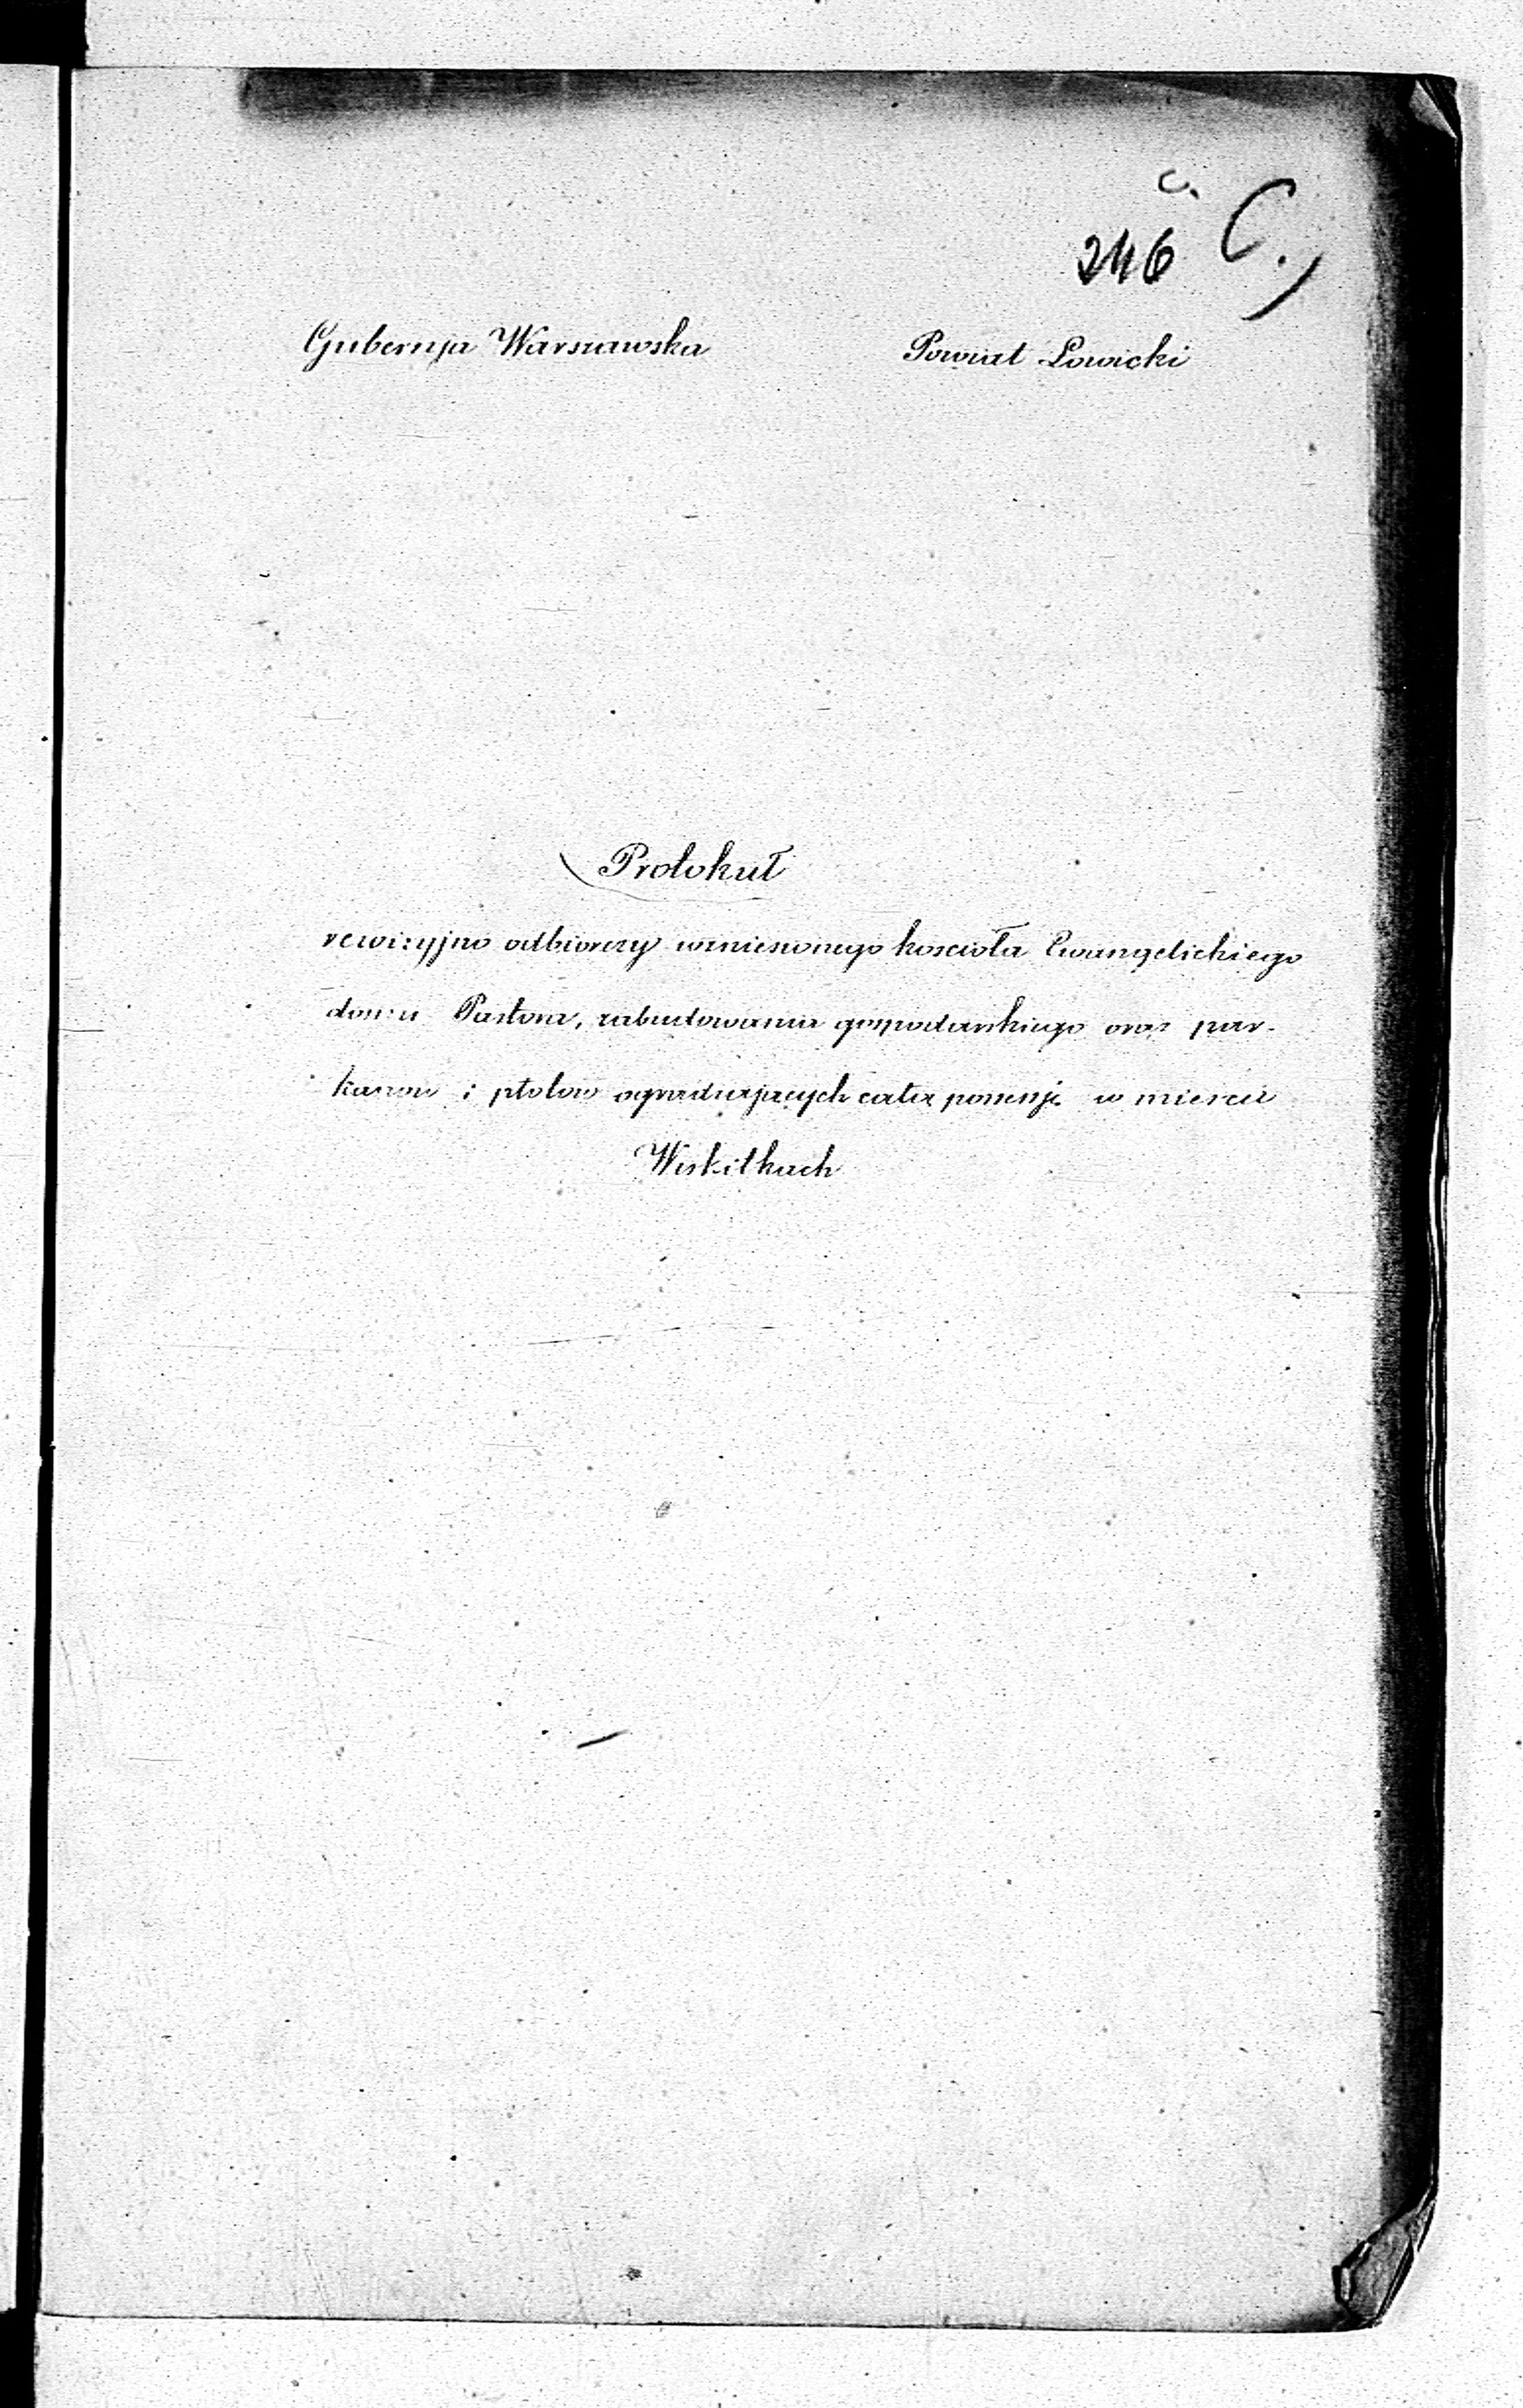 c.
246 C.,
Gubernja Warszawska Powiat Łowicki
Protokuł
rewizyjno odbiorczy wzniesionego kościoła Ewangelickiego
domu Pastora, zabudowania gospodarskiego oraz par-
kanow i płotow ogradzających całą possesję w mieście
Wiskitkach